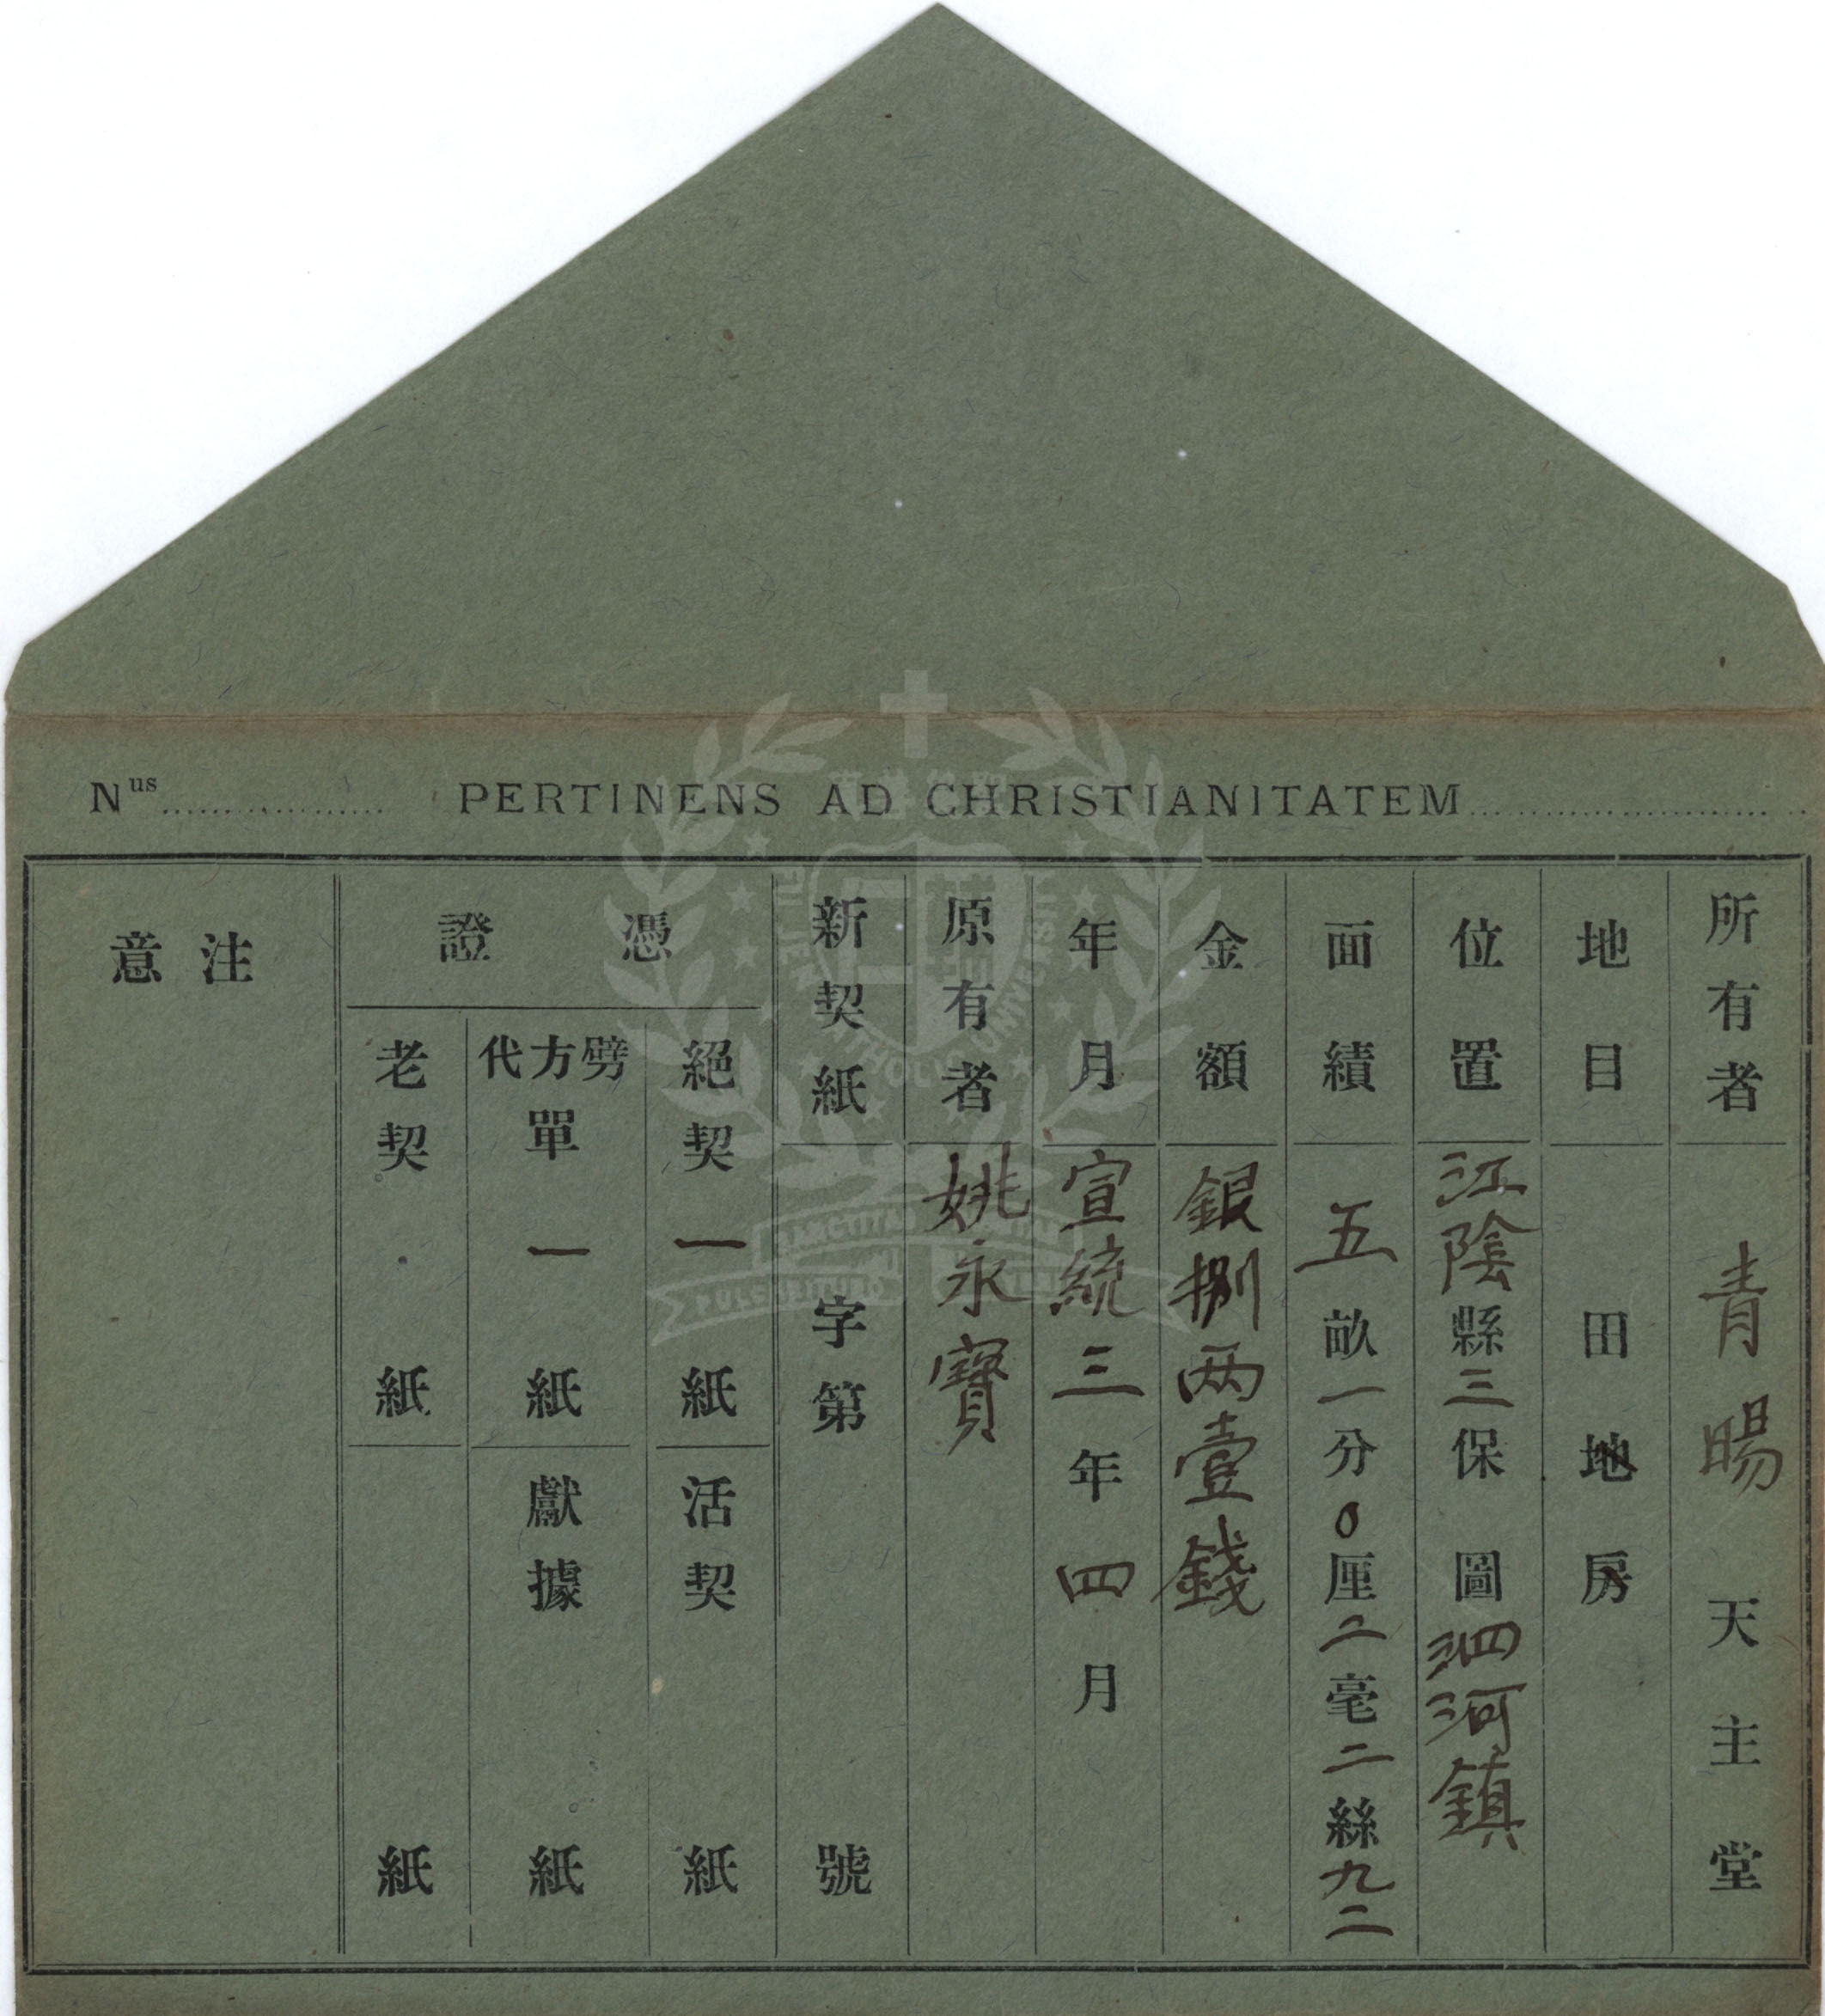 Nus.................. PERTINENS AD CHRISTIANITATEM........................
所有者 青暘天主堂
地目 田地房
位置 江陰縣三保圖泗河鎮
面績 五畝一分0厘二毫二絲九二
金額 銀捌两壹錢
年月 宣統三年四月
原有者 姚永寶
新契紙 字第 號
憑證
絕契 一紙 活契 紙
劈方代單 一紙 獻據 紙
老契 紙 紙
注意